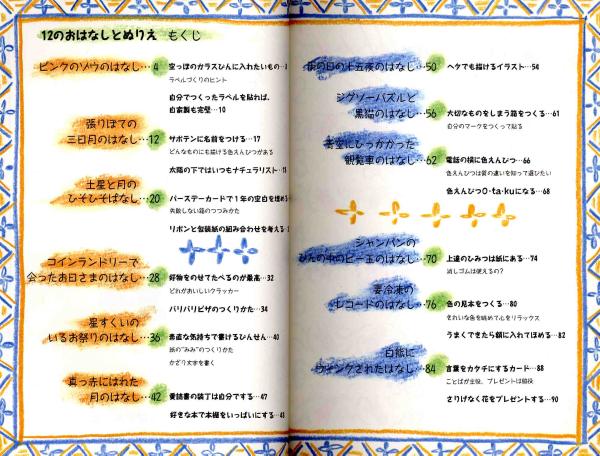 12のおはなしとぬりえ もくじ
ピンクのゾウのはなし…4
空っぽのガラスびんに入れたいもの…
ラベルづくりのヒント
自分でつくったラベルを貼れば、
自家製も完璧…10
張りぼての
三日月のはなし…12
サボテンに名前をつける…17
どんなものにも描ける色えんぴつがある
太陽の下ではいつもナチュラリスト…
土星と月の
ひそひそばなし…20
バースデーカードで1年の空白を埋め
失敗しない箱のつつみかた
リボンと包装紙の組み合わせを考える
コインランドリーで
会ったお日さまのはなし…28
好物をのせてたべるのが最高…32
どれがおいしいクラッカー
バリバリピザのつくりかた…34
星すくいの
いるお祭りのはなし…36
素直な気持ちで書けるびんせん…40
紙の"みみ"のつくりかた
かざり文字を書く
真っ赤にはれた
月のはなし…42
愛読書の装丁は自分でする…47
好きな本で本棚をいっぱいにする…48
雨の日の十五夜のはなし…50
ヘタでも描けるイラスト…54
ジグソーパズルと
黒猫のはなし…56
大切なものをしまう箱をつくる…61
自分のマークをつくって貼る
青空にひっかかった
観覧車のはなし…62
電話の横に色えんぴつ…66
色えんぴつは質の違いを知って選びたい
色えんぴつO-ta-kuになる…68
シャンパンの
びんの中のビー玉のはなし…70
上達のひみつは紙にある…74
消しゴムは使えるの？
レコードのはなし…76
色の見本をつくる…80
きれいな色を眺めて心をリラックス
うまくできたら額に入れてほめる…82
白熊に
ウィンクされたはなし…84
言葉をカタチにするカード…88
ことばが主役、プレゼントは脇役
さりげなく花をプレゼントする…90